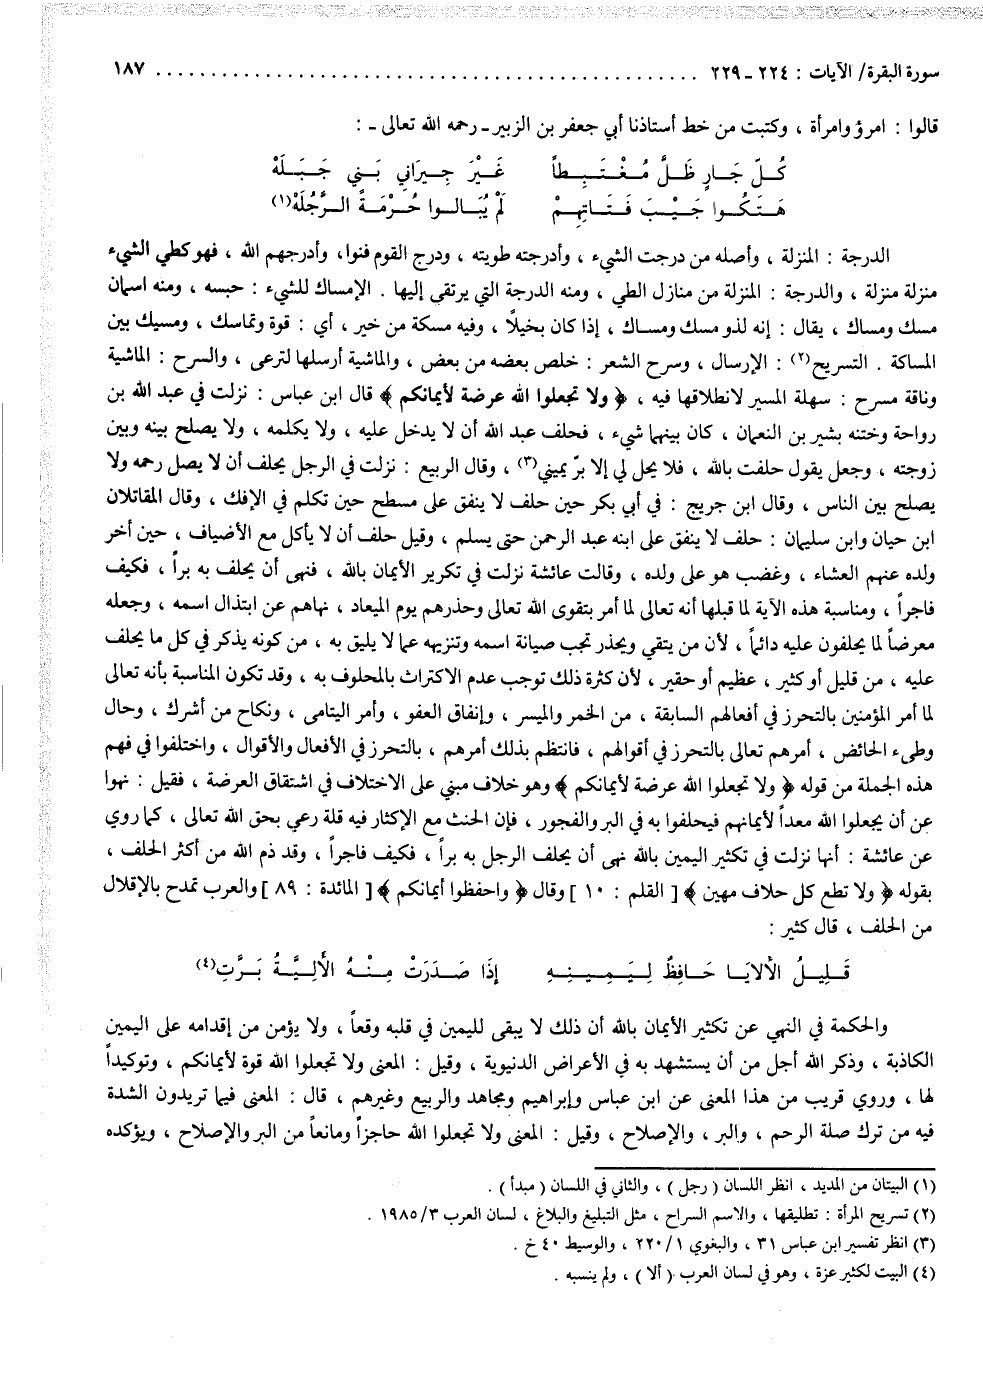 سورة البقرة/ الآيات : ٢٢٤ ـ ٢٢٩ .................................................. ١٨٧
قالوا : امرؤ وامرأة ، وكتبت من خط أستاذنا أبي جعفر بن الزبير ـ رحمه الله تعالى ـ :
كُلّ جَارٍ ظَلَّ مُغْتَبِطاً غَيْرَ جِيرَانِي بَنِي جَبَلَهْ
هَتَكُوا جَيْبَ فَتَاتِهِمْ لَمْ يُبَالُوا حُرْمَةَ الرَّجُلَهْ(١)
الدرجة : المنزلة ، وأصله من درجت الشيء ، وأدرجته طويته ، ودرج القوم فنوا، وأدرجهم الله ، فهو كطي الشيء
منزلة منزلة ، والدرجة : المنزلة من منازل الطي ، ومنه الدرجة التي يرتقى إليها . الإمساك للشيء : حبسه ، ومنه اسمان
مسك ومساك ، يقال : إنه لذو مسك ومساك ، إذا كان بخيلاً ، وفيه مسكة من خير ، أي : قوة وتماسك ، ومسيك بين
المساكة . التسريح(٢) : الإرسال ، وسرح الشعر : خلص بعضه من بعض ، والماشية أرسلها لترعى ، والسرح : الماشية
وناقة مسرح : سهلة المسير لانطلاقها فيه ، ﴿ ولا تجعلوا الله عرضة لأيمانكم ﴾ قال ابن عباس : نزلت في عبد الله بن
رواحة وختنه بشير بن النعمان ، كان بينهما شيء ، فحلف عبد الله أن لا يدخل عليه ، ولا يكلمه ، ولا يصلح بينه وبين
زوجته ، وجعل يقول حلفت بالله ، فلا يحل لي إلا برّ يميني(٣) ، وقال الربيع : نزلت في الرجل يحلف أن لا يصل رحمه ولا
يصلح بين الناس ، وقال ابن جريج : في أبي بكر حين حلف لا ينفق على مسطح حين تكلم في الإفك ، وقال المقاتلان
ابن حيان وابن سليمان : حلف لا ينفق على ابنه عبد الرحمن حتى يسلم ، وقيل حلف أن لا يأكل مع الأضياف ، حين أخر
ولده عنهم العشاء ، وغضب هو على ولده ، وقالت عائشة نزلت في تكرير الأيمان بالله ، فنهى أن يحلف به براً ، فكيف
فاجراً ، ومناسبة هذه الآية لما قبلها أنه تعالى لما أمر بتقوى الله تعالى وحذرهم يوم الميعاد ، نهاهم عن ابتذال اسمه ، وجعله
معرضاً لما يحلفون عليه دائماً ، لأن من يتقي ويحذر تجب صيانة اسمه وتنزيهه عما لا يليق به ، من كونه يذكر في كل ما يحلف
عليه ، من قليل أو كثير ، عظيم أو حقير ، لأن كثرة ذلك توجب عدم الاكتراث بالمحلوف به ، وقد تكون المناسبة بأنه تعالى
لما أمر المؤمنين بالتحرز في أفعالهم السابقة ، من الخمر والميسر ، وإنفاق العفو ، وأمر اليتامى ، ونكاح من أشرك ، وحال
وطىء الحائض ، أمرهم تعالى بالتحرز في أقوالهم ، فانتظم بذلك أمرهم ، بالتحرز في الأفعال والأقوال ، واختلفوا في فهم
هذه الجملة من قوله ﴿ ولا تجعلوا الله عرضة لأيمانكم ﴾ وهو خلاف مبني على الاختلاف في اشتقاق العرضة ، فقيل : نهوا
عن أن يجعلوا الله معداً لأيمانهم فيحلفوا به في البر والفجور ، فإن الحنث مع الإكثار فيه قلة رعي بحق الله تعالى ، كما روي
عن عائشة : أنها نزلت في تكثير اليمين بالله نهى أن يحلف الرجل به براً ، فكيف فاجراً ، وقد ذم الله من أكثر الحلف ،
بقوله ﴿ ولا تطع كل حلاف مهين ﴾ [ القلم : ١٠ ] وقال ﴿ واحفظوا أيمانكم ﴾ [ المائدة : ٨٩ ] والعرب تمدح بالإقلال
من الحلف ، قال كثير :
قَلِيلُ الْأَلَايَا حَافِظٌ لِيَمِينِهِ إِذَا صَدَرَتْ مِنْهُ الأَلِيَّةُ بَرَّتِ(٤)
والحكمة في النهي عن تكثير الأيمان بالله أن ذلك لا يبقى لليمين في قلبه وقعاً ، ولا يؤمن من إقدامه على اليمين
الكاذبة ، وذكر الله أجل من أن يستشهد به في الأعراض الدنيوية ، وقيل : المعنى ولا تجعلوا الله قوة لأيمانكم ، وتوكيداً
لها ، وروي قريب من هذا المعنى عن ابن عباس وإبراهيم ومجاهد والربيع وغيرهم ، قال : المعنى فيما تريدون الشدة
فيه من ترك صلة الرحم ، والبر ، والإصلاح ، وقيل : المعنى ولا تجعلوا الله حاجزاً ومانعاً من البر والإصلاح ، ويؤكده
(١) البيتان من المديد ، انظر اللسان ( رجل ) ، والثاني في اللسان ( مبدأ ) .
(٢) تسريح المرأة : تطليقها ، والاسم السراح ، مثل التبليغ والبلاغ ، لسان العرب ١٩٨٥/٣ .
(٣) انظر تفسير ابن عباس ٣١ ، والبغوي ٢٢٠/١ ، والوسيط ٤٠ خ .
(٤) البيت لكثير عزة ، وهو في لسان العرب ( ألا ) ، ولم ينسبه .